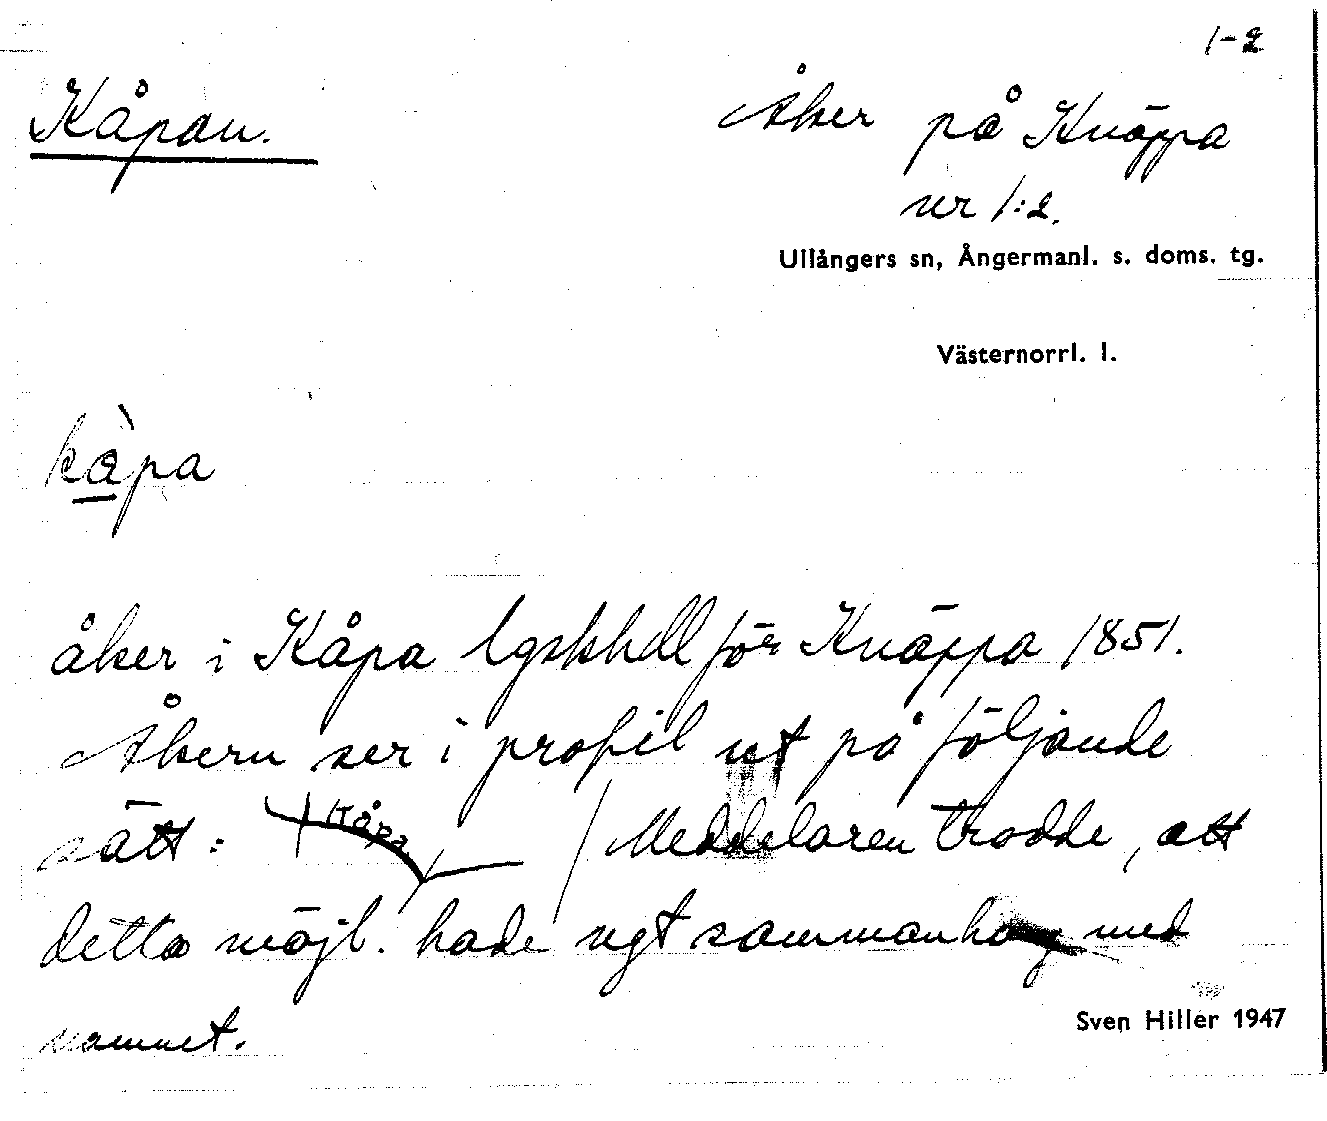 1-2
Kåpan.
Åker på Knäppa
nr 1:2.
Ullångers sn, Ångermanl. s. doms. tg.
Västernorrl. l.
kàpa
åker i Kåpa lgskhdl för Knäppa 1851.
Åkern ser i profil ut på följande
sätt: Kåpa Meddelaren trodde, att
detta möjl. hade ngt sammanhang med
namnet.
Sven Hiller 1947